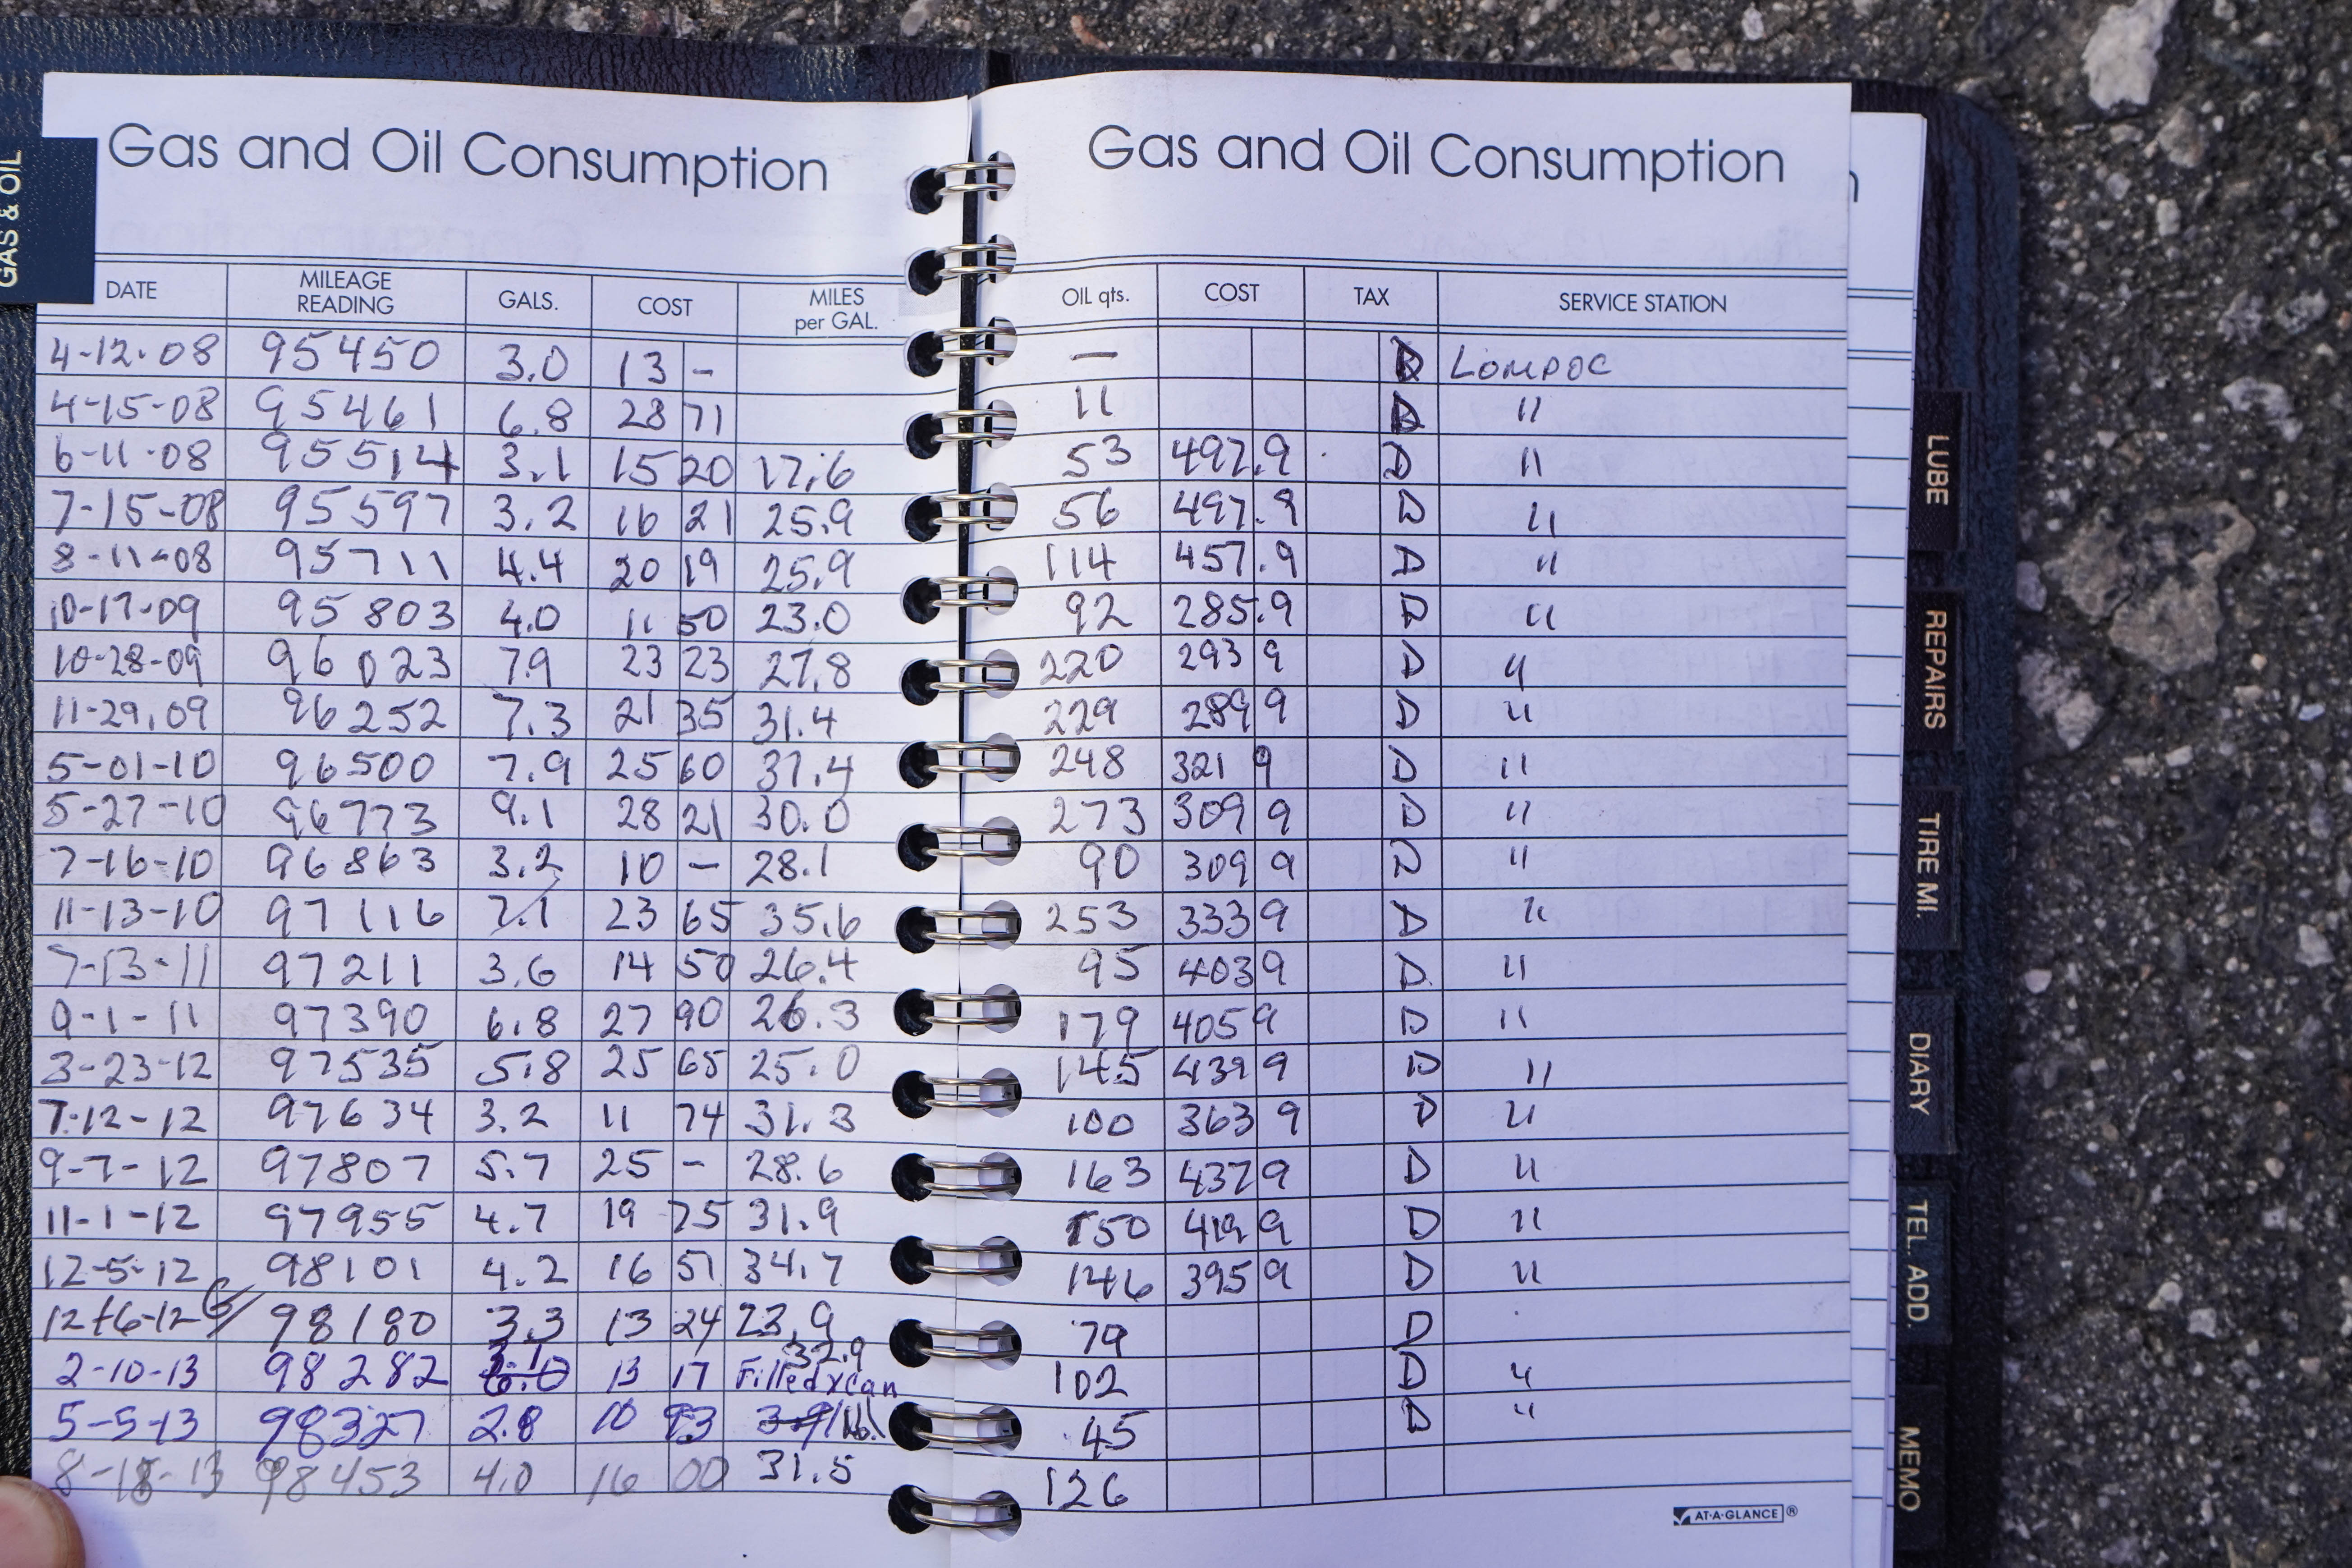 GAS & OIL
Gas and Oil Consumption
DATE MILEAGE READING GALS. COST MILES per GAL.
4-12-08 95450 3.0 13 -
4-15-08 95461 6.8 28 71
6-11-08 95514 3.1 15 20 17.6
7-15-08 95597 3.2 16 21 25.9
8-11-08 95711 4.4 20 19 25.9
10-17-09 95803 4.0 11 50 23.0
10-28-09 96023 7.9 23 23 27.8
11-29.09 96252 7.3 21 35 31.4
5-01-10 96500 7.9 25 60 31.4
5-27-10 96773 9.1 28 21 30.0
7-16-10 96863 3.2 10 - 28.1
11-13-10 97116 7.1 23 65 35.6
7-13-11 97211 3.6 14 50 26.4
9-1-11 97390 6.8 27 90 26.3
3-23-12 97535 5.8 25 65 25.0
7-12-12 97634 3.2 11 74 31.3
9-7-12 97807 5.7 25 - 28.6
11-1-12 97955 4.7 19 75 31.9
12-5-12 98101 4.2 16 51 34.7
12-16-12 98180 3.3 13 24 23.9
32.9
2-10-13 98282 3.1 13 17 Filled x can
5-5-13 98327 2.8 10 93 16.1
8-18-13 98453 4.0 16 00 31.5
Gas and Oil Consumption
OIL qts. COST TAX SERVICE STATION
— D LOMPOC
11 D "
53 497.9 D "
56 497.9 D "
114 457.9 D "
92 285.9 D "
220 293 9 D "
229 289 9 D "
248 321 9 D "
273 309 9 D "
90 309 9 D "
253 333 9 D "
95 403 9 D "
179 405 9 D "
145 439 9 D "
100 363 9 D "
163 437 9 D "
150 419 9 D "
146 395 9 D "
79 D
102 D "
45 D "
126
AT-A-GLANCE®
LUBE
REPAIRS
TIRE MI.
DIARY
TEL. ADD.
MEMO